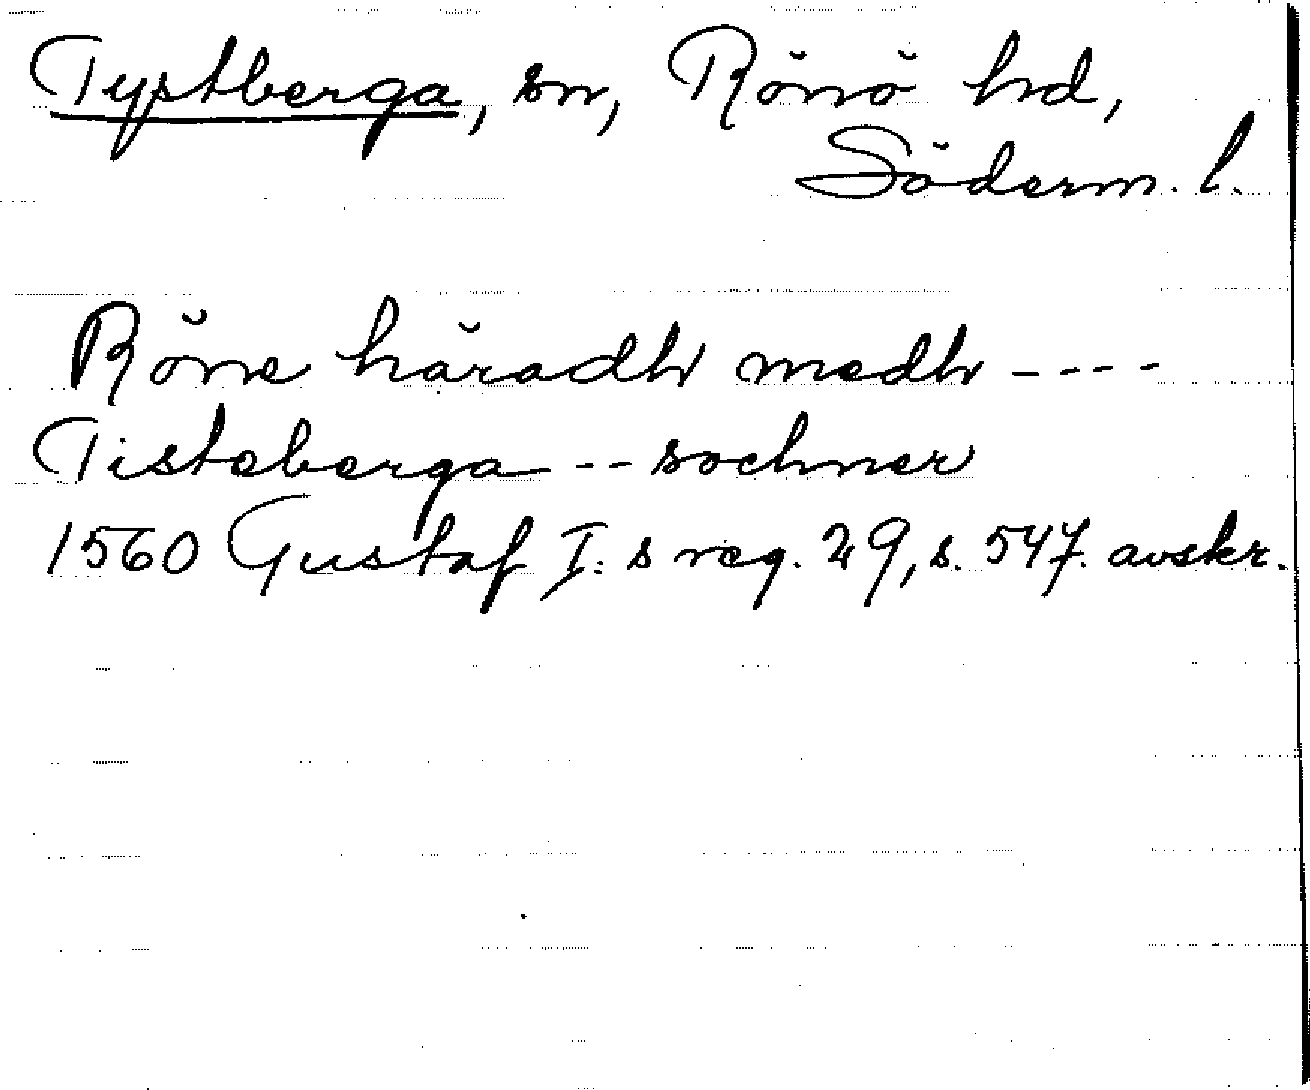 Tystberga, sn, Rönö hd,
Söderm. l.
Röne häradh medh ----
Tisteberga -- sochner
1560 Gustaf I:s reg. 29, s. 547. avskr.